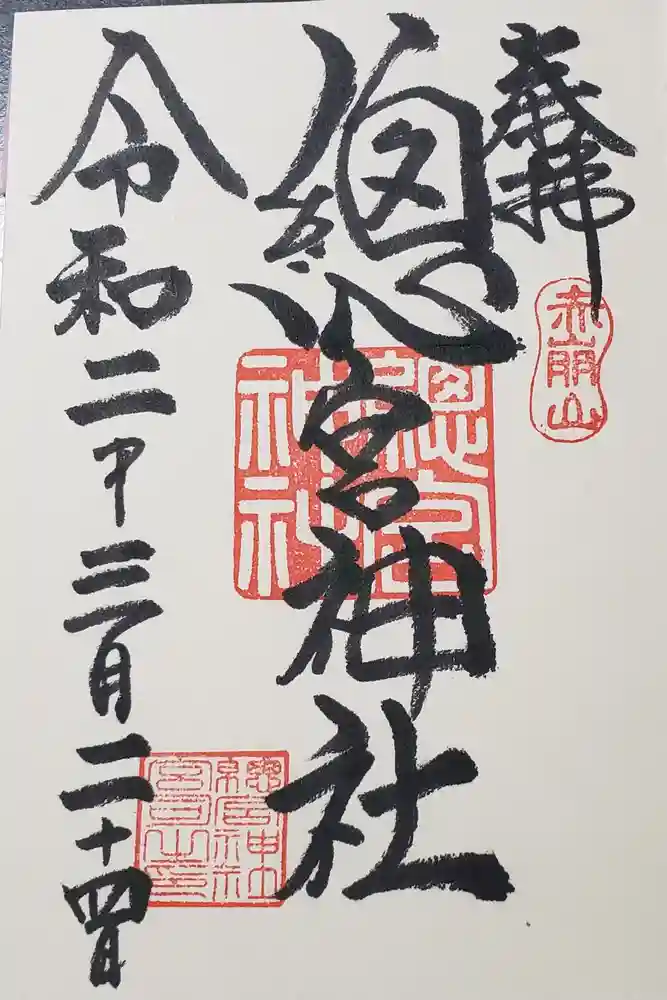 奉拝
赤崩山
總宮神社
總宮神社
令和二年三月二十四日
總宮神社
宮司之印